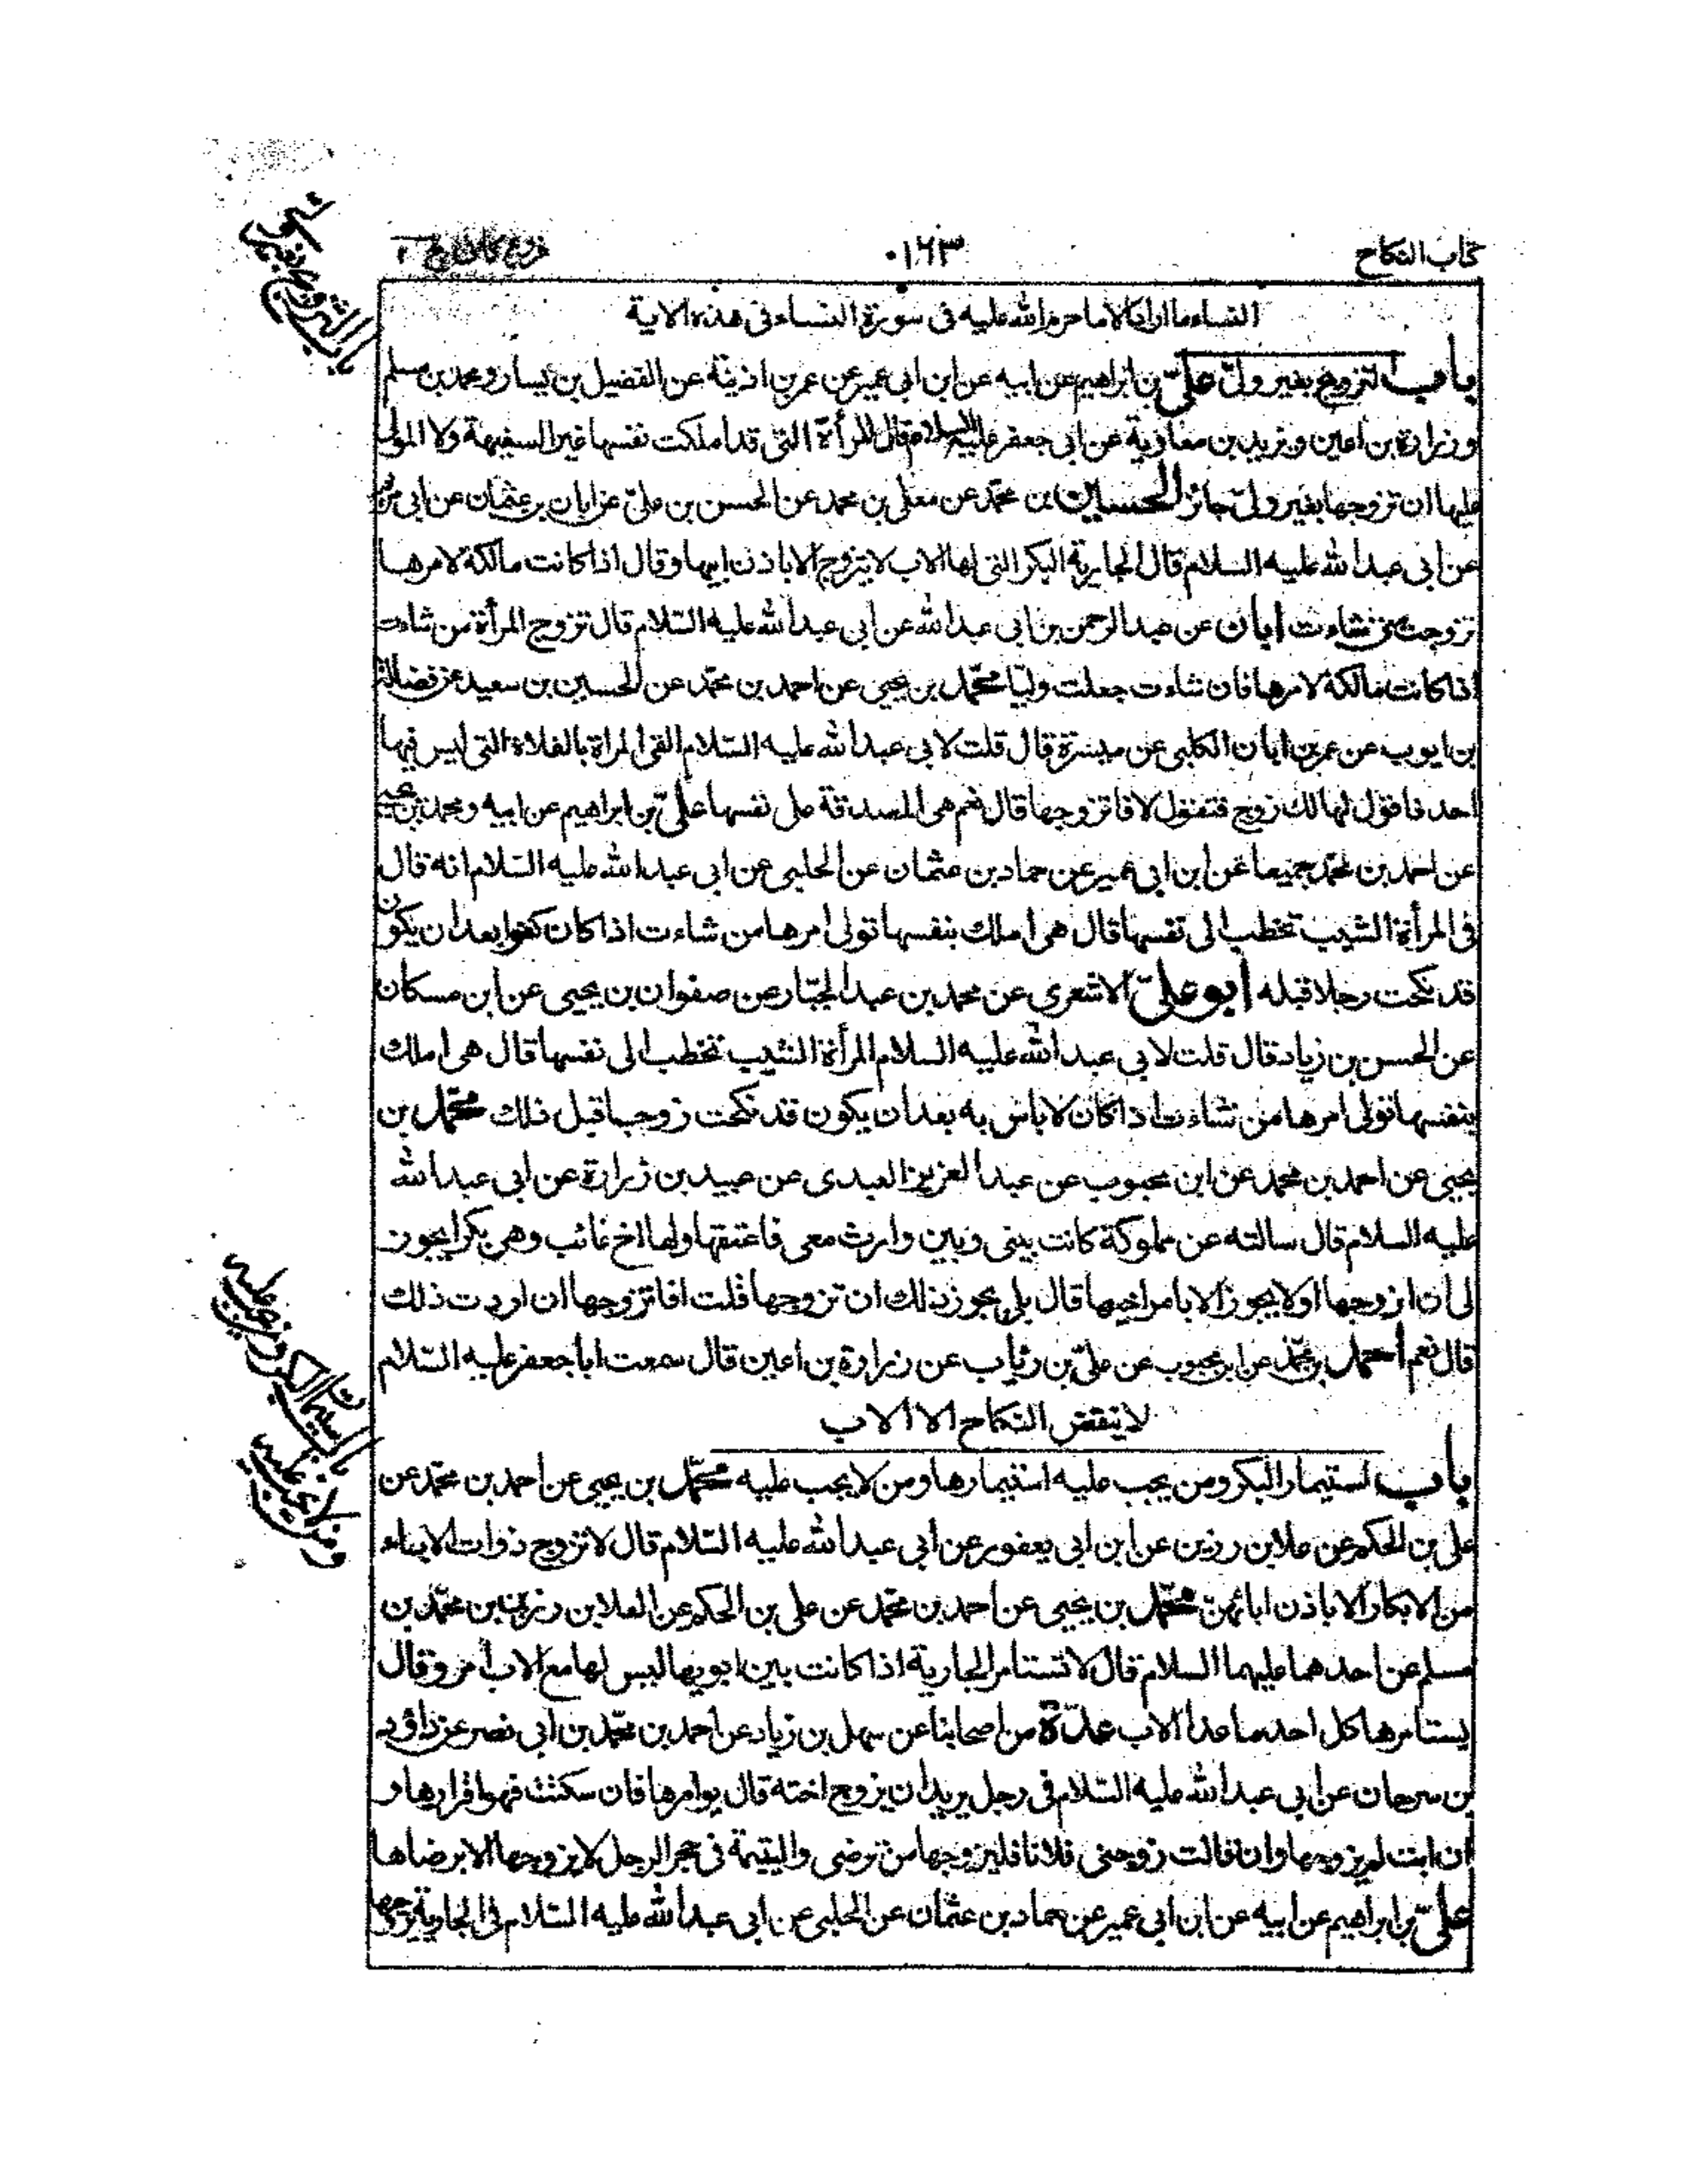 كتاب النكاح
١٦٣
فروع كافى ج ٢
النساء ما اراد الا ما حرم الله عليه فى سورة النساء فى هذه الاية
باب التزويج بغير ولىّ علىّ بن ابراهيم عن ابيه عن ابن ابى عمير عن عمر بن اذينة عن الفضيل بن يسار ومحمد بن مسلم
وزرارة بن اعين وبريد بن معاوية عن ابى جعفر عليه السلام قال المرأة التى قد املكت نفسها غير السفيهة ولا المولى
عليها ان تزوجها بغير ولىّ جائز الحسين بن محمّد عن معلى بن محمد عن الحسن بن علىّ عن ابان بن عثمان عن ابى مريم
عن ابى عبد الله عليه السلام قال الجارية البكر التى لها الاب لا يتزوج الا باذن ابيها وقال اذا كانت مالكة لامرها
تزوجت متى شاءت ابان عن عبد الرحمن بن ابى عبد الله عن ابى عبد الله عليه السّلام قال تزوج المرأة من شاءت
اذا كانت مالكة لامرها فان شاءت جعلت وليّا محمّد بن يحيى عن احمد بن محمّد عن الحسين بن سعيد عن فضالة
بن ايوب عن عمر بن ابان الكلبى عن ميسرة قال قلت لابى عبد الله عليه السّلام القى المراة بالفلاة التى ليس فيها
احد فاقول لها لك زوج فتقول لا فاتزوجها قال نعم هى المصدقة على نفسها علىّ بن ابراهيم عن ابيه ومحمد بن يحيى
عن احمد بن محمّد جميعا عن ابن ابى عمير عن حماد بن عثمان عن الحلبى عن ابى عبد الله عليه السّلام انه قال
فى المرأة الثيب تخطب الى نفسها قال هى املك بنفسها تولى امرها من شاءت اذا كان كفوا بعد ان يكون
قد نكحت رجلا قبله أبو علىّ الاشعرى عن محمد بن عبد الجبّار عن صفوان بن يحيى عن ابن مسكان
عن الحسن بن زياد قال قلت لابى عبد الله عليه السلام المرأة الثيب تخطب الى نفسها قال هى املك
بنفسها تولى امرها من شاءت اذا كان لا باس به بعد ان يكون قد نكحت زوجا قبل ذلك محمّد بن
يحيى عن احمد بن محمد عن ابن محبوب عن عبد العزيز العبدى عن عبيد بن زرارة عن ابى عبد الله
عليه السلام قال سالته عن مملوكة كانت بينى وبين وارث معى فاعتقها ولها اخ غائب وهى بكر ايجوز
لى ان ازوجها او لا يجوز الا بامر اخيها قال بلى يجوز ذلك ان تزوجها قلت افاتزوجها ان اردت ذلك
قال نعم أحمد بن محمّد عن ابن محبوب عن علىّ بن رئاب عن زرارة بن اعين قال سمعت ابا جعفر عليه السّلام
لا ينقض النكاح الا الاب
باب استيمار البكر ومن يجب عليه استيمارها ومن لا يجب عليه محمّد بن يحيى عن احمد بن محمّد عن
على بن الحكم عن علا بن رزين عن ابن ابى يعفور عن ابى عبد الله عليه السّلام قال لا تزوج ذوات الاباء
من الابكار الا باذن ابائهنّ محمّد بن يحيى عن احمد بن محمّد عن على بن الحكم عن العلا بن رزين عن محمّد بن
مسلم عن احدهما عليهما السلام قال لا تستامر الجارية اذا كانت بين ابويها ليس لها مع الاب امر وقال
يستامرها كل احد ما عدا الاب عدّة من اصحابنا عن سهل بن زياد عن احمد بن محمّد بن ابى نصر عن داود
بن سرحان عن ابى عبد الله عليه السّلام فى رجل يريد ان يزوج اخته قال يوامرها فان سكتت فهو اقرارها و
ان ابت لم يزوجها وان قالت زوجنى فلانا فليزوجها من ترضى واليتيمة فى حجر الرجل لا يزوجها الا برضاها
علىّ بن ابراهيم عن ابيه عن ابن ابى عمير عن حماد بن عثمان عن الحلبى عن ابى عبد الله عليه السّلام فى الجارية يزوجها